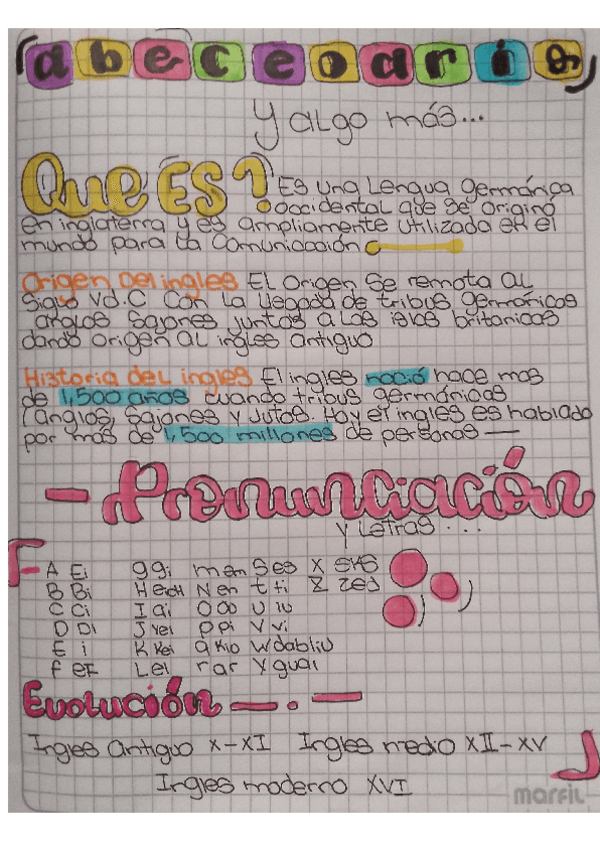 abeceoario
y algo más...
Que ES? Es una Lengua germánica
occidental que se originó
en inglaterra y es ampliamente utilizada en el
mundo para la comunicación
Origen Del ingles El Origen Se remota al
Siglo Vd.C Con la llegada de tribus germanicas
anglos Sajones juntos a las islas britanicas
dando origen al ingles antiguo
Historia del ingles El ingles nació hace mas
de 1,500 años cuando tribus germánicas
(anglos, Sajones y Jutos. Hoy el ingles es hablado
por mas de 1,500 millones de personas —
- Pronunciación
y Letras...
A Ei g gi m em S es X eks
B Bi H eich N en t ti Z zed
C Ci I ai O ou U iu
D Di J yei p pi V vi
E i K kei q kio W dabliu
F eF L el r ar Y guai
Evolución — . —
Ingles Antiguo X-XI Ingles medio XII-XV
Ingles moderno XVI
marfil